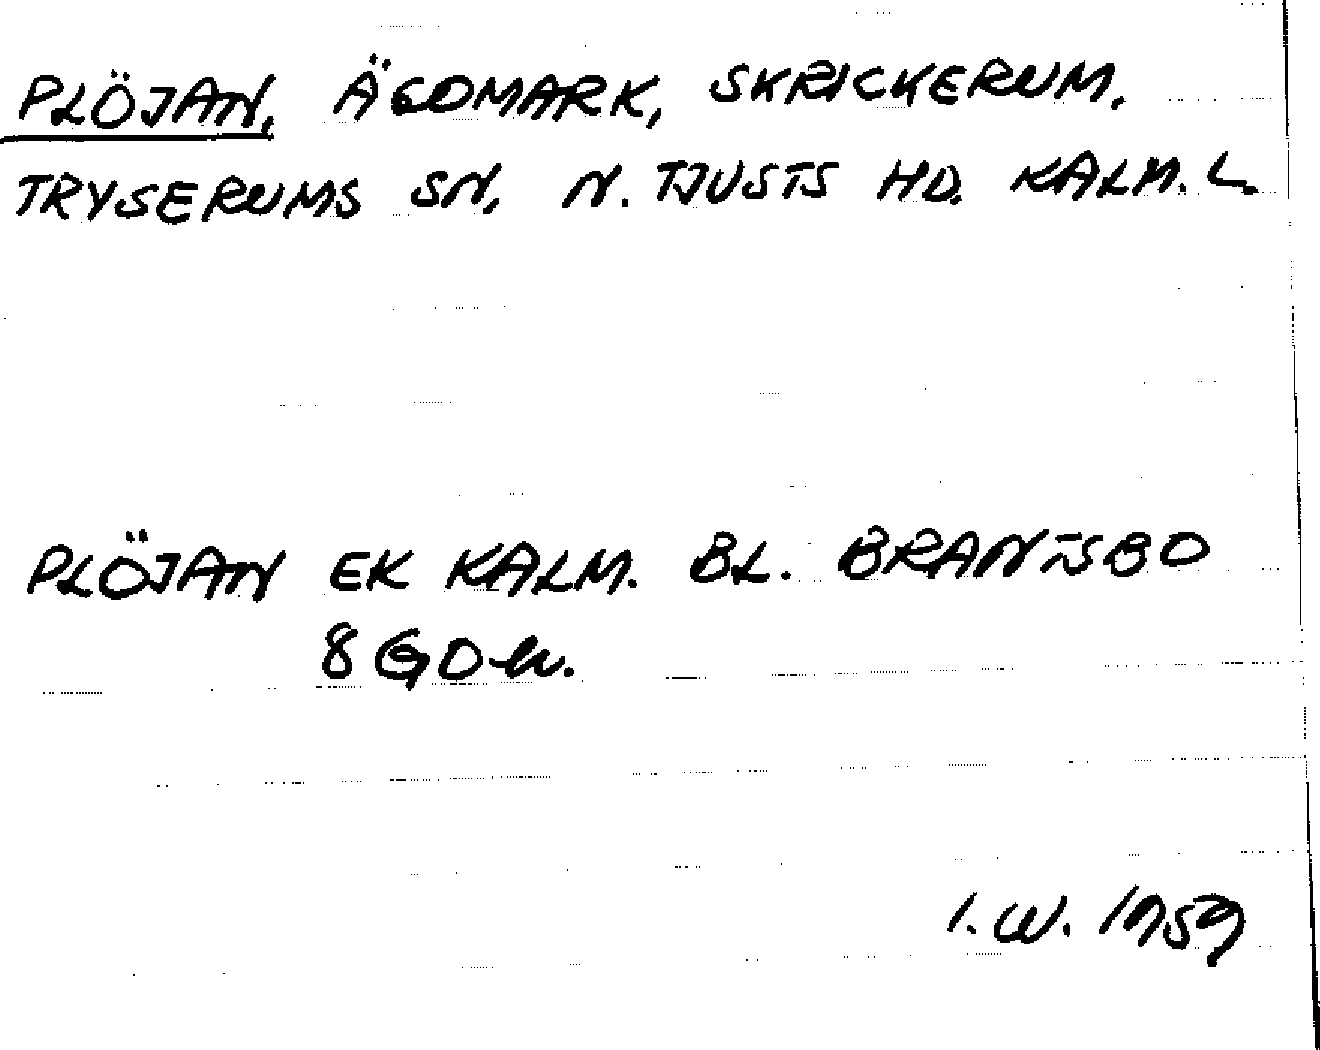 PLÖJAN, ÄGOMARK, SKRICKERUM,
TRYSERUMS SN, N. TJUSTS HD. KALM. L.
PLÖJAN EK KALM. BL. BRANTSBO
8 G D h.
I. W. 1959